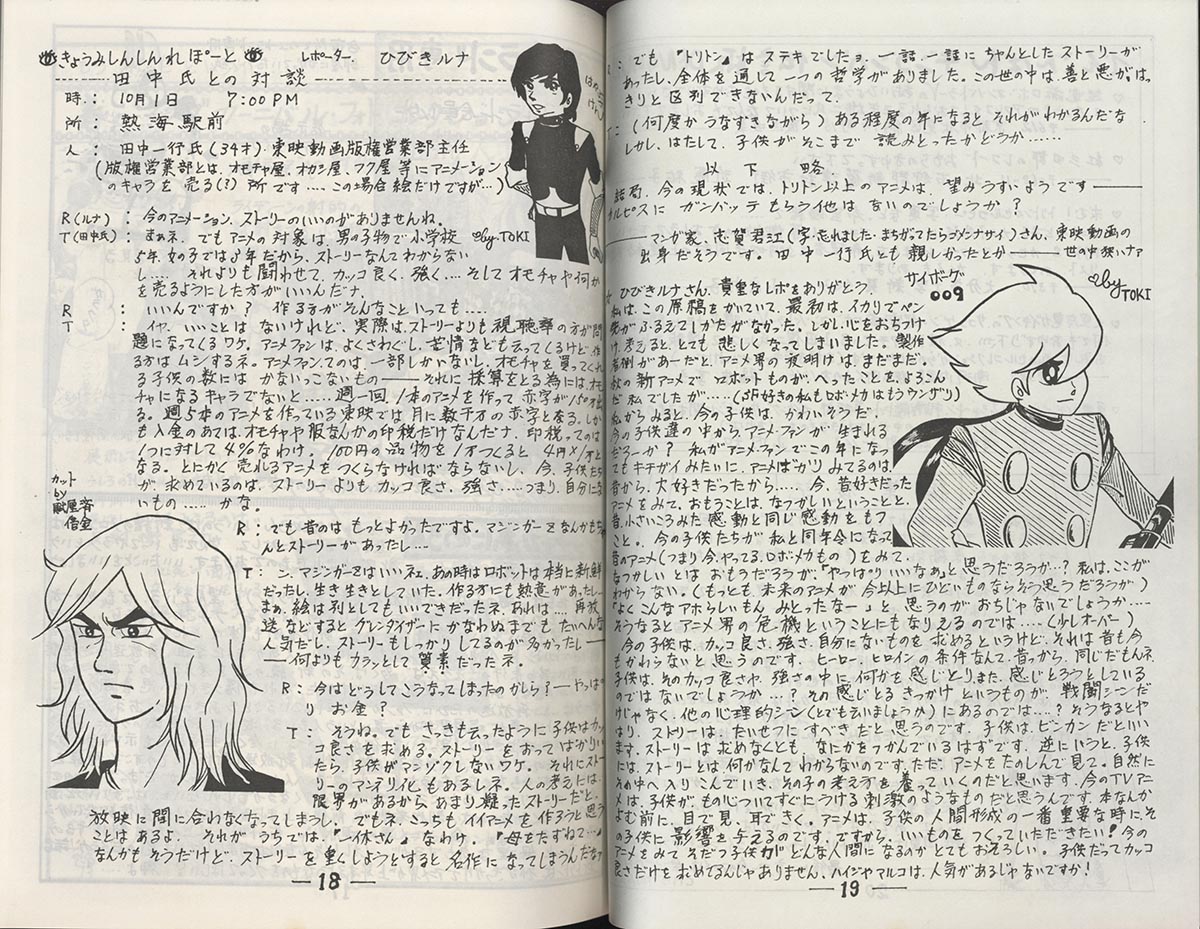 きょうみしんしんれぽーと レポーター. ひびきルナ
田中氏との対談
時: 10月1日 7:00PM
所: 熱海駅前
人: 田中一行氏(34才)東映動画版権営業部主任
(版権営業部とは、オモチャ屋、オカシ屋、フク屋等にアニメーション
のキャラを売る(?)所です....この場合絵だけですが...)
by.TOKI
R(ルナ): 今のアニメーション、ストーリーのいいのがありませんね。
T(田中氏): まぁネ. でもアニメの対象は、男の子物で小学校
5年、女の子では3年だから、ストーリーなんてわからない
し.... それよりも闘わせて、カッコ良く、強く....そしてオモチャや何か
を売るようにした方がいいんだナ.
R: いいんですか? 作る方がそんなこといっても....
T: イヤ、いいことはないけれど、実際は、ストーリーよりも視聴率の方が問
題になってくるワケ。アニメファンは、よくさわぐし、苦情なども云ってくるけど、作
る方はムシするネ。アニメファンてのは、一部しかいないし、オモチャを買ってくれ
る子供の数にはかないっこないもの――それに採算をとる為には、オモ
チャになるキャラでないと.....週一回、1本のアニメを作って赤字が
る。週5本のアニメを作っている東映では月に数千万の赤字となる。しか
も入金のあては、オモチャや服なんかの印税だけなんだナ. 印税ってのは
1つに対して4%なわけ。100円の品物を1万つくると4円×1万と
なる。とにかく売れるアニメをつくらなければならないし、今、子供たち
が求めているのは、ストーリーよりもカッコ良さ、強さ.....つまり、自分にな
いもの.....かな。
カット
by
R: でも昔のはもっとよかったですよ。マジンガーZなんかもちゃ
んとストーリーがあったし....
T: ン、マジンガーZはいいネェ、あの時はロボットは本当に新鮮
だったし、生き生きとしていた。作る方にも熱意があったし...
まぁ、絵は別としてもいいできだったネ. あれは....再放
送などするとグレンダイザーにかなわぬまでもたいへんな
人気だし、ストーリーもしっかりしてるのが多かったし――
――何よりもカラッとして質素だったネ.
R: 今はどうしてこうなってしまったのかしら?――やっぱ
り お金?
T: そうね。でもさっきも云ったように子供はカッ
コ良さを求める。ストーリーをおってばかりい
たら、子供がマンゾクしないワケ。それにストー
リーのマンネリ化もあるしネ。人の考えには、
限界があるからあまり凝ったストーリーだと、
放映に間に合わなくなってしまうし. でもネ、こっちもイイアニメを作ろうと思う
ことはあるよ。それがうちでは、「一休さん」なわけ。「母をたずねて...」
なんかもそうだけど、ストーリーを重くしようとすると名作になってしまうんだなァ
―18―
: でも『トリトン』はステキでしたョ. 一話、一話にちゃんとしたストーリーが
あったし、全体を通して一つの哲学がありました。この世の中は、善と悪がはっ
きりと区別できないんだって.
T: (何度かうなずきながら)ある程度の年になるとそれがわかるんだな.
しかし、はたして、子供がそこまで読みとったかどうか......
以下略
結局、今の現状では、トリトン以上のアニメは、望みうすいようです――
カルピスにガンバッテもらう他はないのでしょうか?
――マンガ家、志賀君江(字、忘れました・まちがってたらゴメンナサイ)さん、東映動画の
出身だそうです。田中一行氏とも親しかったとか――世の中狭いナァ
ひびきルナさん、貴重なレポをありがとう.
サイボーグ
009
by TOKI
私は、この原稿をかいていて、最初は、イカリでペン
がふるえてしかたがなかった。しかし、心をおちつけ
考えると、とても悲しくなってしまいました。製作
者側があーだと、アニメ界の夜明けは、まだまだ。
秋の新アニメでロボットものが、へったことを、よろこん
だ私でしたが....(SF好きの私もロボ・メカはもうウンザリ)
私からみると、今の子供は、かわいそうだ.
今の子供達の中から、アニメ・ファンが生まれる
だろーか? 私がアニメファンでこの年になっ
てもキチガイみたいに、アニメばかりみてるのは、
昔から、大好きだったから.....今、昔好きだった
アニメをみて、おもうことは、なつかしいということと、
昔、小さいころみた感動と同じ感動をもつ
こと。今の子供たちが私と同年令になって
昔のアニメ(つまり今、やってる、ロボ・メカもの)をみて、
なつかしいとはおもうだろうが、「やっぱりいいなぁ」と思うだろうか...? 私は、ここが
わからない。(もっとも未来のアニメが今以上にひどいものならそう思うだろうが)
「よくこんなアホらしいもん、みとったなー」と思うのがおちじゃないでしょうか....
そうなるとアニメ界の危機ということにもなりえるのでは....(少しオーバー)
今の子供は、カッコ良さ、強さ、自分にないものを求めるというけど、それは昔も今
もかわらないと思うのです。ヒーロー、ヒロインの条件なんて、昔っから、同じだもんネ.
子供は、そのカッコ良さや、強さの中に何かを感じとり、また、感じとろうとしている
のではないでしょうか...? その感じとるきっかけというものが、戦闘シーンだ
けじゃなく、他の心理的シーン(とでも云いましょうか)にあるのでは....? そうなるとや
はり、ストーリーは、たいせつにすべきだと思うのです。子供は、ビンカンだといい
ます。ストーリーは求めなくとも、なにかをつかんでいるはずです。逆にいうと、子供
には、ストーリーとは何かなんてわからないのです。ただ、アニメをたのしんで見て、自然に
その中へ入りこんでいき、その子の考え方を養っていくのだと思います。今のTVアニ
メは、子供が、ものごころついてすぐにうける刺激のようなものだと思うんです。本なんか
よむ前に、目で見、耳できく。アニメは、子供の人間形成の一番重要な時に、そ
の子供に影響を与えるのです。ですから、いいものをつくっていただきたい! 今の
アニメをみて、そだつ子供がどんな人間になるのかとてもおそろしい。子供だってカッコ
良さだけを求めてるんじゃありません。ハイジやマルコは、人気があるじゃないですか!
―19―